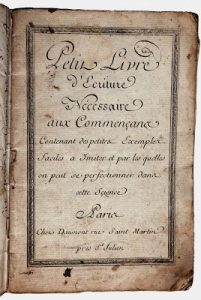 Petit Livre
d'Ecriture
Necessaire
aux Commençans
Contenant des petits Exemples
faciles a Imiter et par les quelles
on peut se perfectionner dans
cette Science
A Paris
Chés Daumont rue Saint Martin
près St Julien